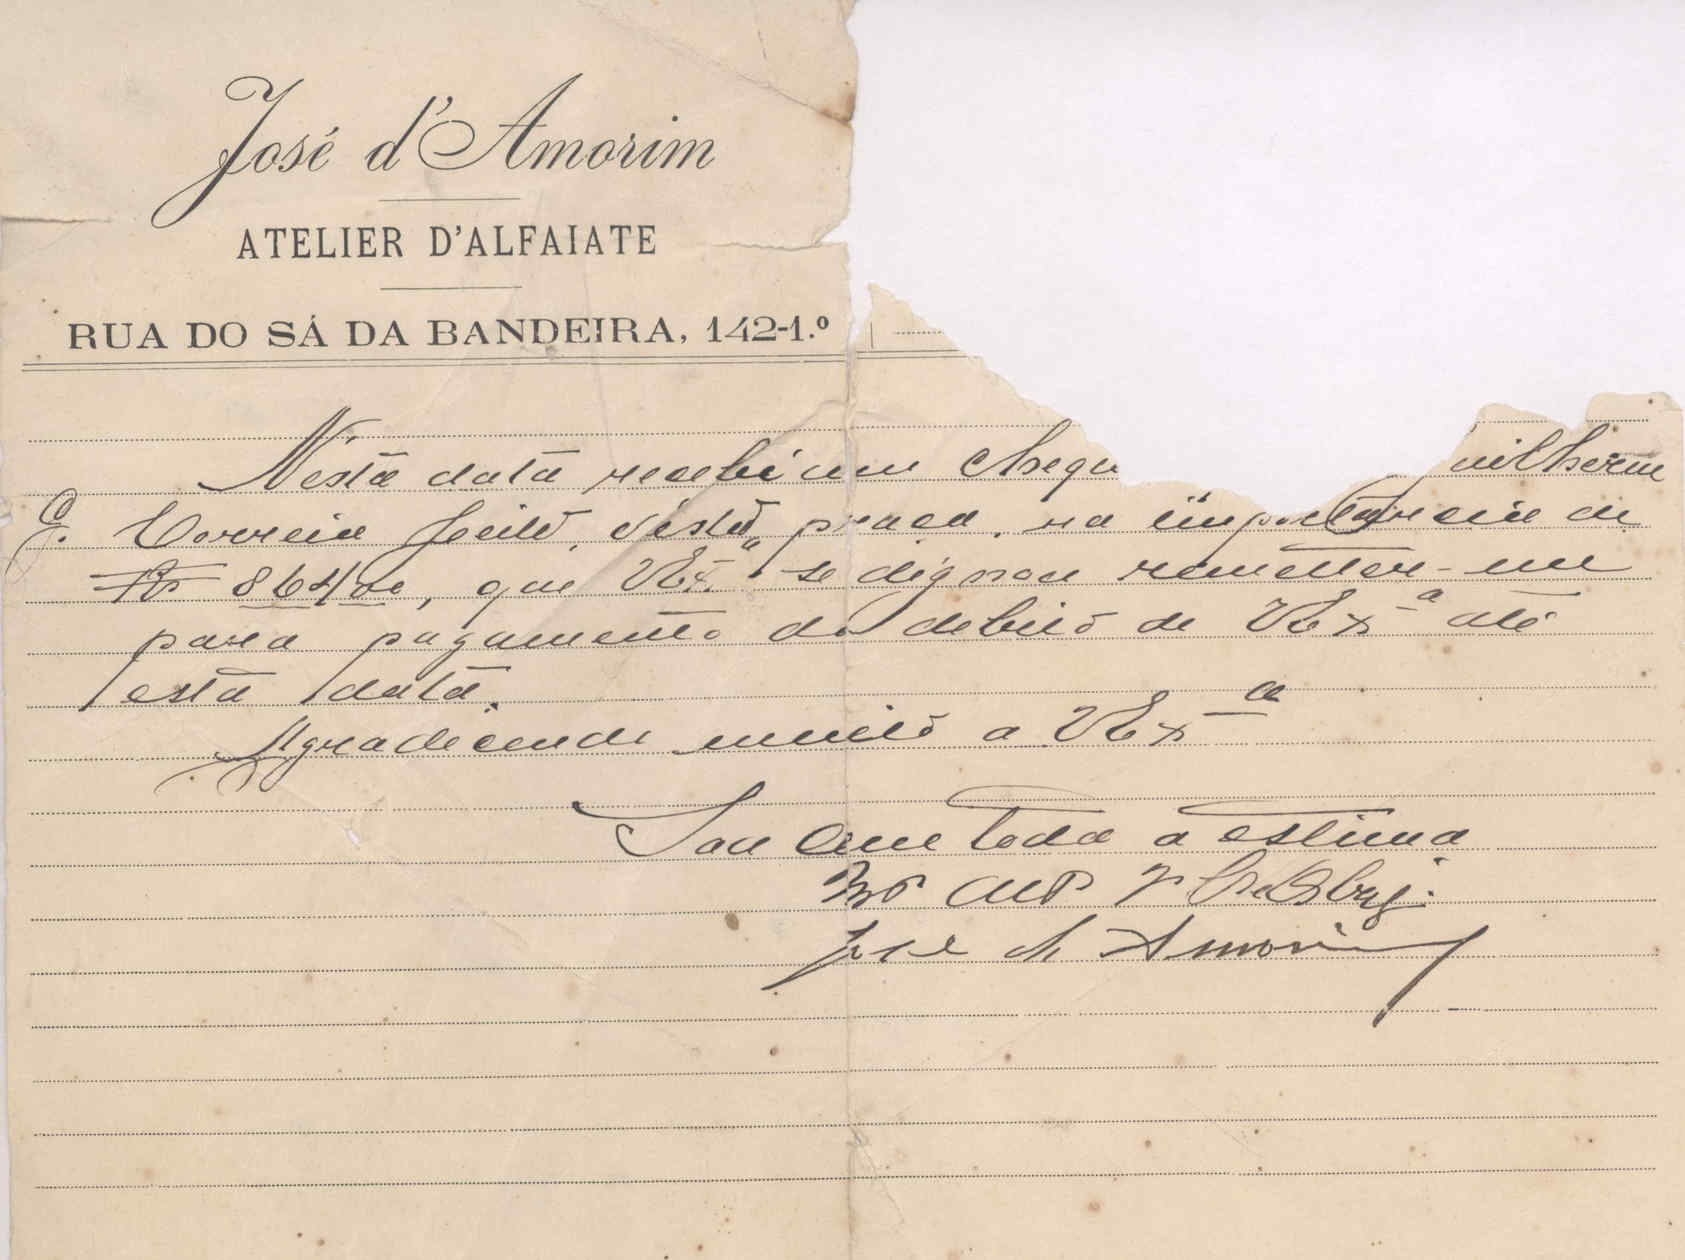 José d'Amorim
ATELIER D'ALFAIATE
RUA DO SÁ DA BANDEIRA, 142-1.º
Nesta data recebi um chequ uilherme
G. Correia Leite, desta praça, na importancia de
864, que VEx.ª se dignou remetter-me
para pagamento do debito de VExª até
esta data.
Agradecendo muito a VExª
Sou com toda a estima
José d'Amorim